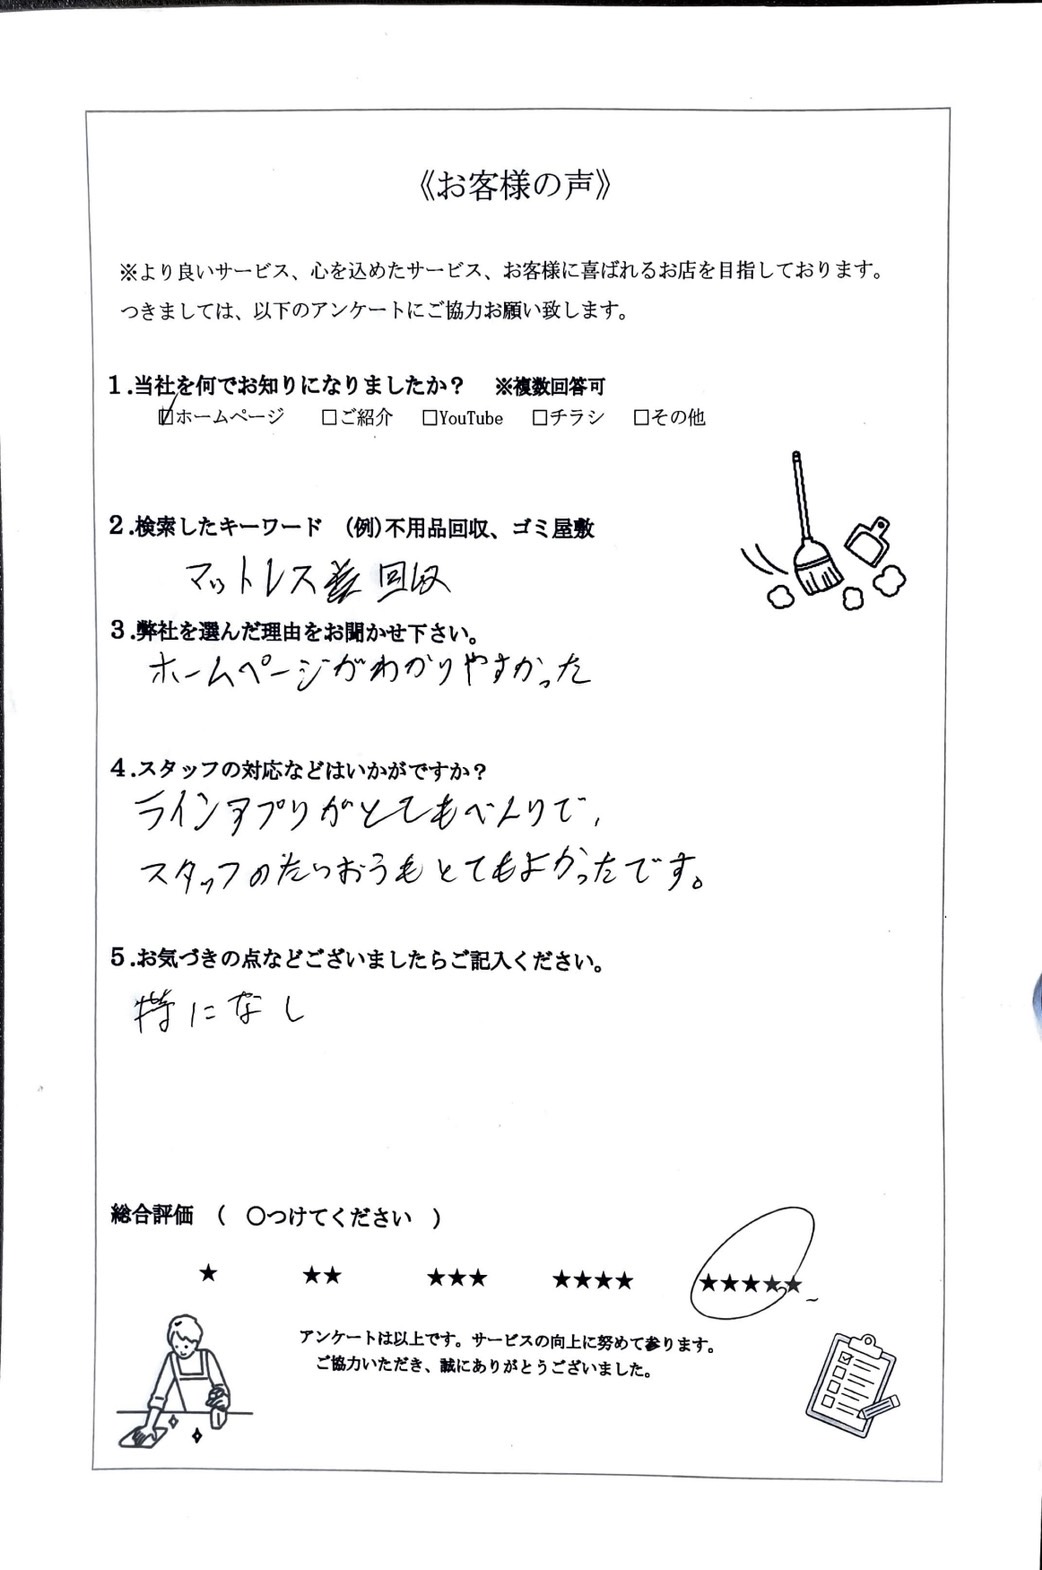 《お客様の声》
※より良いサービス、心を込めたサービス、お客様に喜ばれるお店を目指しております。
つきましては、以下のアンケートにご協力お願い致します。
1.当社を何でお知りになりましたか？　※複数回答可
☑ホームページ　□ご紹介　□YouTube　□チラシ　□その他
2.検索したキーワード　(例)不用品回収、ゴミ屋敷
マットレス 回収
3.弊社を選んだ理由をお聞かせ下さい。
ホームページがわかりやすかった
4.スタッフの対応などはいかがですか？
ラインアプリがとてもべんりで、
スタッフのたいおうもとてもよかったです。
5.お気づきの点などございましたらご記入ください。
特になし
総合評価　（　○つけてください　）
★　★★　★★★　★★★★　★★★★★
アンケートは以上です。サービスの向上に努めて参ります。
ご協力いただき、誠にありがとうございました。